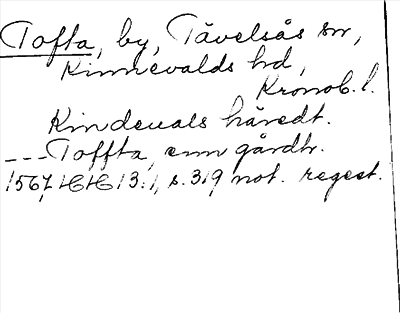 Tofta, by, Tävelsås sn,
Kinnevalds hd,
Kronob. l.
Kindeuals häredt.
--- Toffta, enn gårdh.
1567, HH 13:1, s. 319, not. regest.